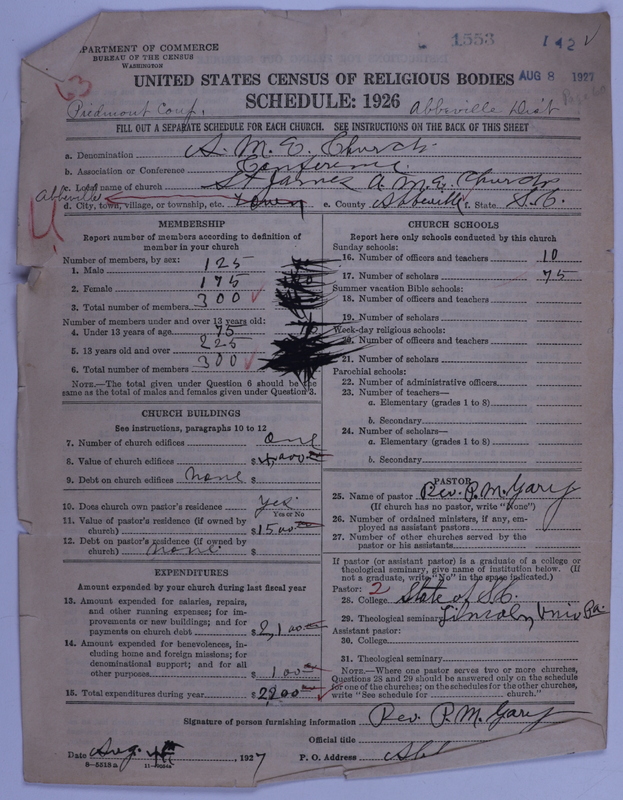 1553
142
DEPARTMENT OF COMMERCE
BUREAU OF THE CENSUS
WASHINGTON
UNITED STATES CENSUS OF RELIGIOUS BODIES
AUG 8 1927
SCHEDULE: 1926
Piedmont Conf.
Abbeville Dist
FILL OUT A SEPARATE SCHEDULE FOR EACH CHURCH. SEE INSTRUCTIONS ON THE BACK OF THIS SHEET
a. Denomination A. M. E. Church
b. Association or Conference Conference
c. Local name of church St James A. M. E. Church
Abbeville
d. City, town, village, or township, etc. town e. County Abbeville f. State S.C.
MEMBERSHIP
Report number of members according to definition of
member in your church
Number of members, by sex:
1. Male 125
2. Female 175
3. Total number of members 300
Number of members under and over 13 years old:
4. Under 13 years of age 75
5. 13 years old and over 225
6. Total number of members 300
NOTE.—The total given under Question 6 should be the
same as the total of males and females given under Question 3.
CHURCH BUILDINGS
See instructions, paragraphs 10 to 12
7. Number of church edifices one
8. Value of church edifices $
9. Debt on church edifices none $
10. Does church own pastor's residence? yes
Yes or No
11. Value of pastor's residence (if owned by
church) $1500
12. Debt on pastor's residence (if owned by
church) none $
EXPENDITURES
Amount expended by your church during last fiscal year
13. Amount expended for salaries, repairs,
and other running expenses; for im-
provements or new buildings; and for
payments on church debt $2,100
14. Amount expended for benevolences, in-
cluding home and foreign missions; for
denominational support; and for all
other purposes $100
15. Total expenditures during year $2200
CHURCH SCHOOLS
Report here only schools conducted by this church
Sunday schools:
16. Number of officers and teachers 10
17. Number of scholars 75
Summer vacation Bible schools:
18. Number of officers and teachers
19. Number of scholars
Week-day religious schools:
20. Number of officers and teachers
21. Number of scholars
Parochial schools:
22. Number of administrative officers
23. Number of teachers—
a. Elementary (grades 1 to 8)
b. Secondary
24. Number of scholars—
a. Elementary (grades 1 to 8)
b. Secondary
PASTOR
25. Name of pastor Rev. P. M. Gary
(If church has no pastor, write "None")
26. Number of ordained ministers, if any, em-
ployed as assistant pastors
27. Number of other churches served by the
pastor or his assistants
If pastor (or assistant pastor) is a graduate of a college or
theological seminary, give name of institution below. (If
not a graduate, write "No" in the space indicated.)
Pastor: 2
28. College State of S.C.
29. Theological seminary Lincoln Univ Pa.
Assistant pastor:
30. College
31. Theological seminary
NOTE.—Where one pastor serves two or more churches,
Questions 28 and 29 should be answered only on the schedule
for one of the churches; on the schedules for the other churches,
write "See schedule for church."
Signature of person furnishing information Rev. P. M. Gary
Official title
Date Aug. , 1927 P. O. Address
8-5518a